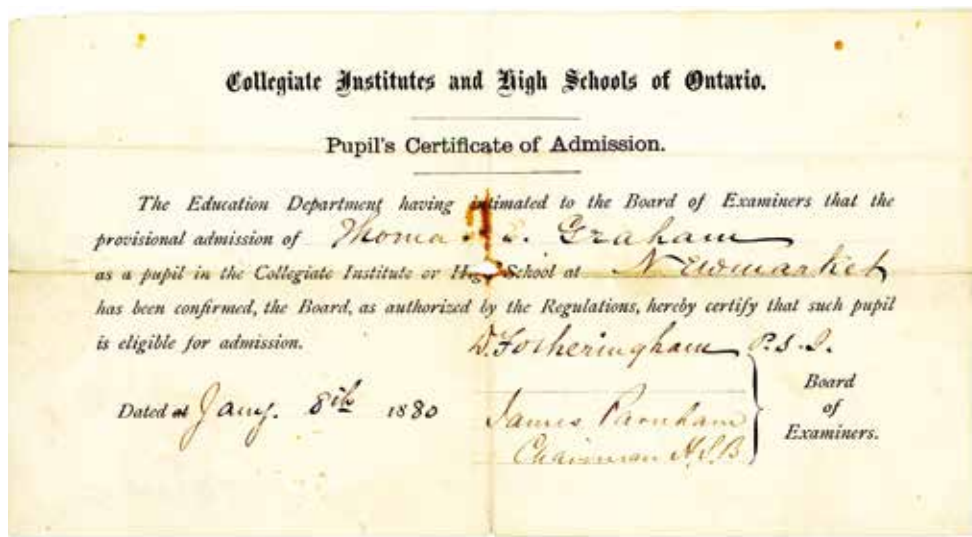 Collegiate Institutes and High Schools of Ontario.
Pupil's Certificate of Admission.
The Education Department having intimated to the Board of Examiners that the
provisional admission of Thomas E. Graham
as a pupil in the Collegiate Institute or High School at Newmarket
has been confirmed, the Board, as authorized by the Regulations, hereby certify that such pupil
is eligible for admission.
D. Fotheringham P.S.I.
Dated at Jany. 8th 1880
James Parnham
Chairman H.S.B
Board
of
Examiners.